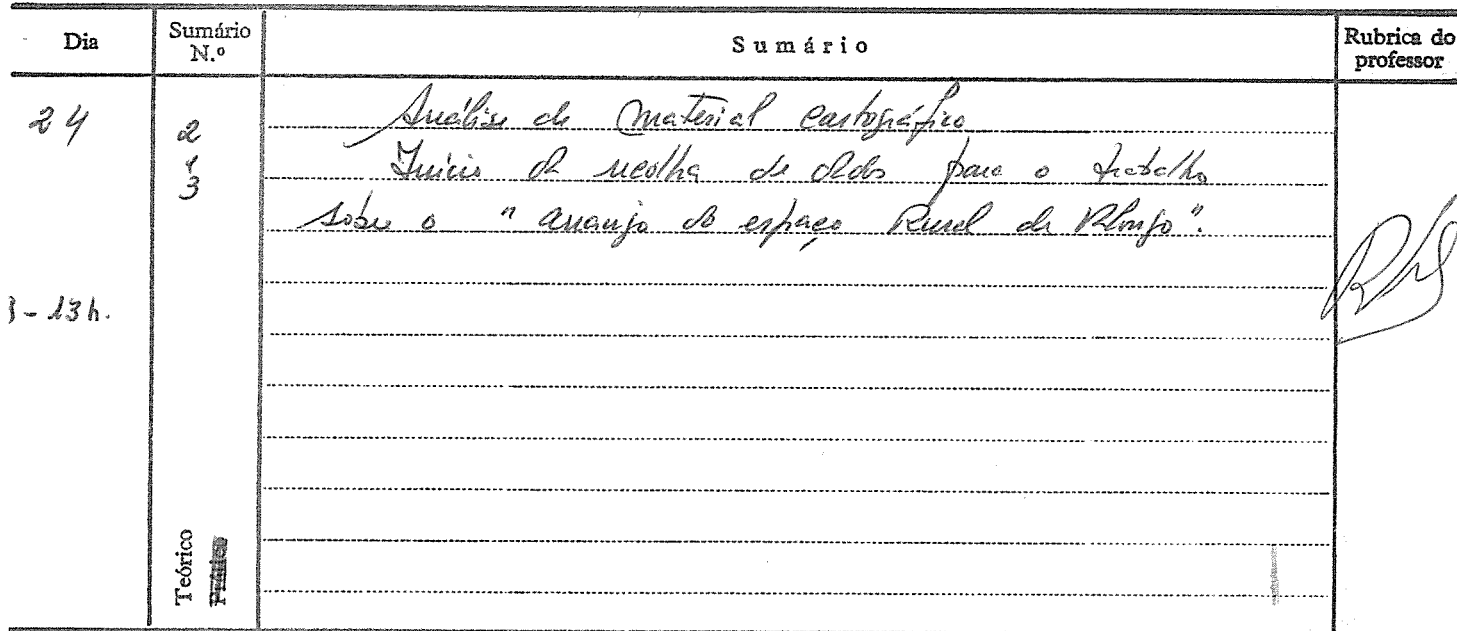 Dia
Sumário N.º
Sumário
Rubrica do professor
24
2
e
3
Análise de material cartográfico
Início da recolha de dados para o trabalho
sobre o "arranjo do espaço Rural de
- 13 h.
Teórico
Prático